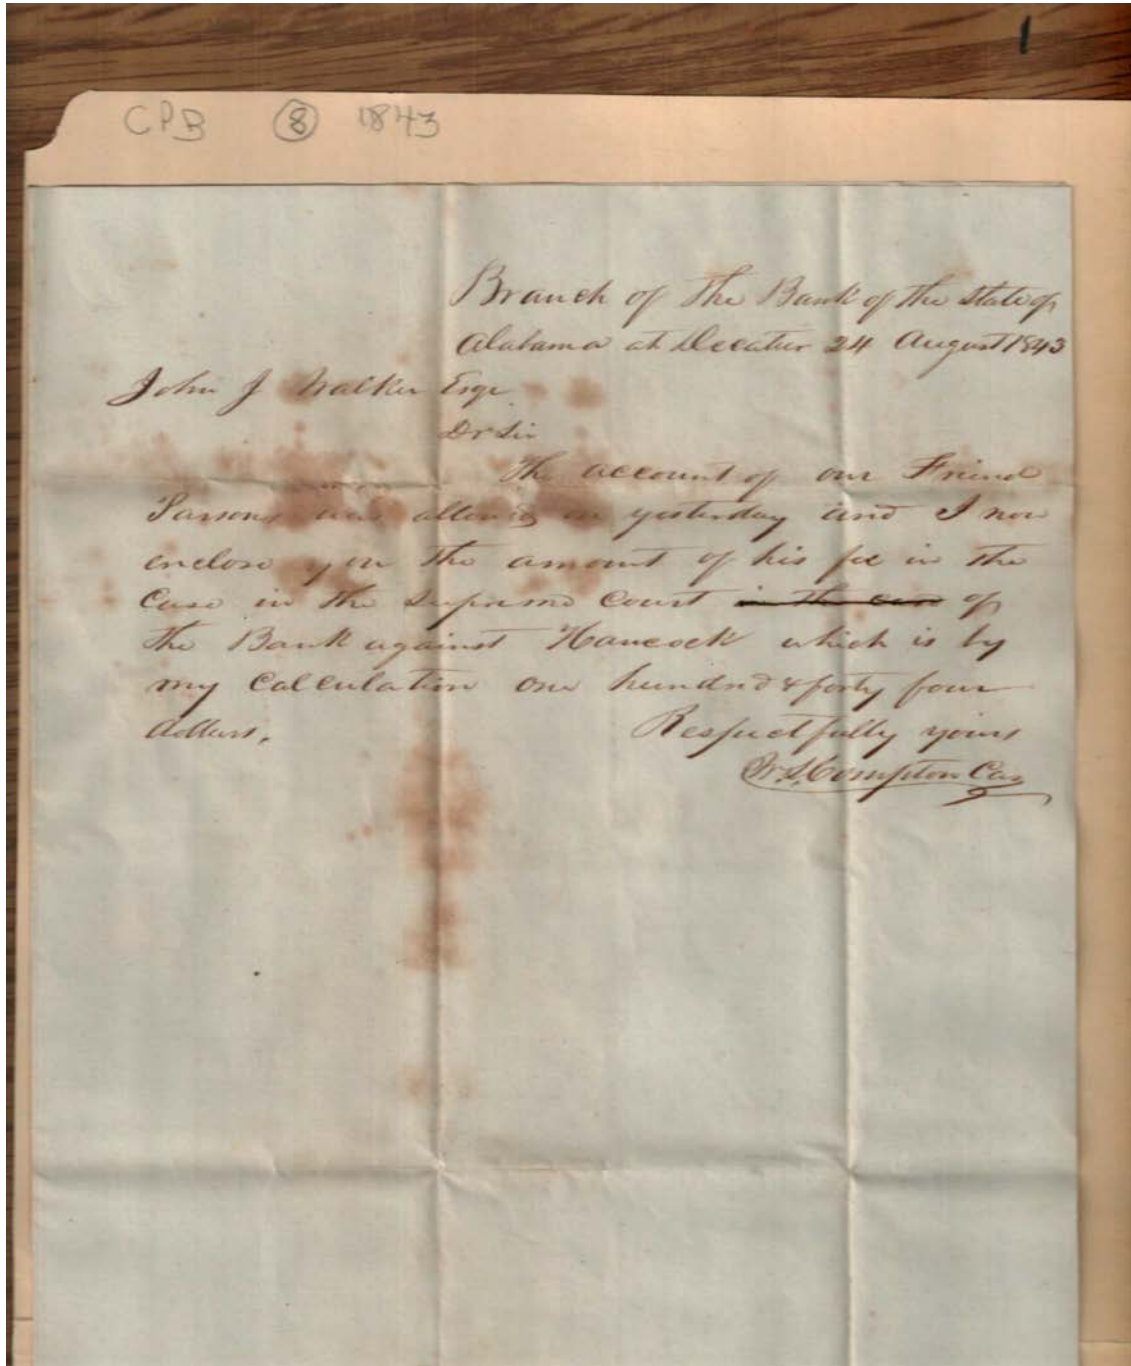 1
CPB 8 1843
Branch of The Bank of the State of
Alabama at Decatur 24 August 1843
John J Walker Esqr
Dr Sir
The account of our Friend
Parsons was allowed on yesterday and I now
enclose you the amount of his fee in the
Case in the Supreme Court in the case of
the Bank against Hancock which is by
my Calculation one hundred & forty four
dollars,
Respectfully yours
Compton Cas